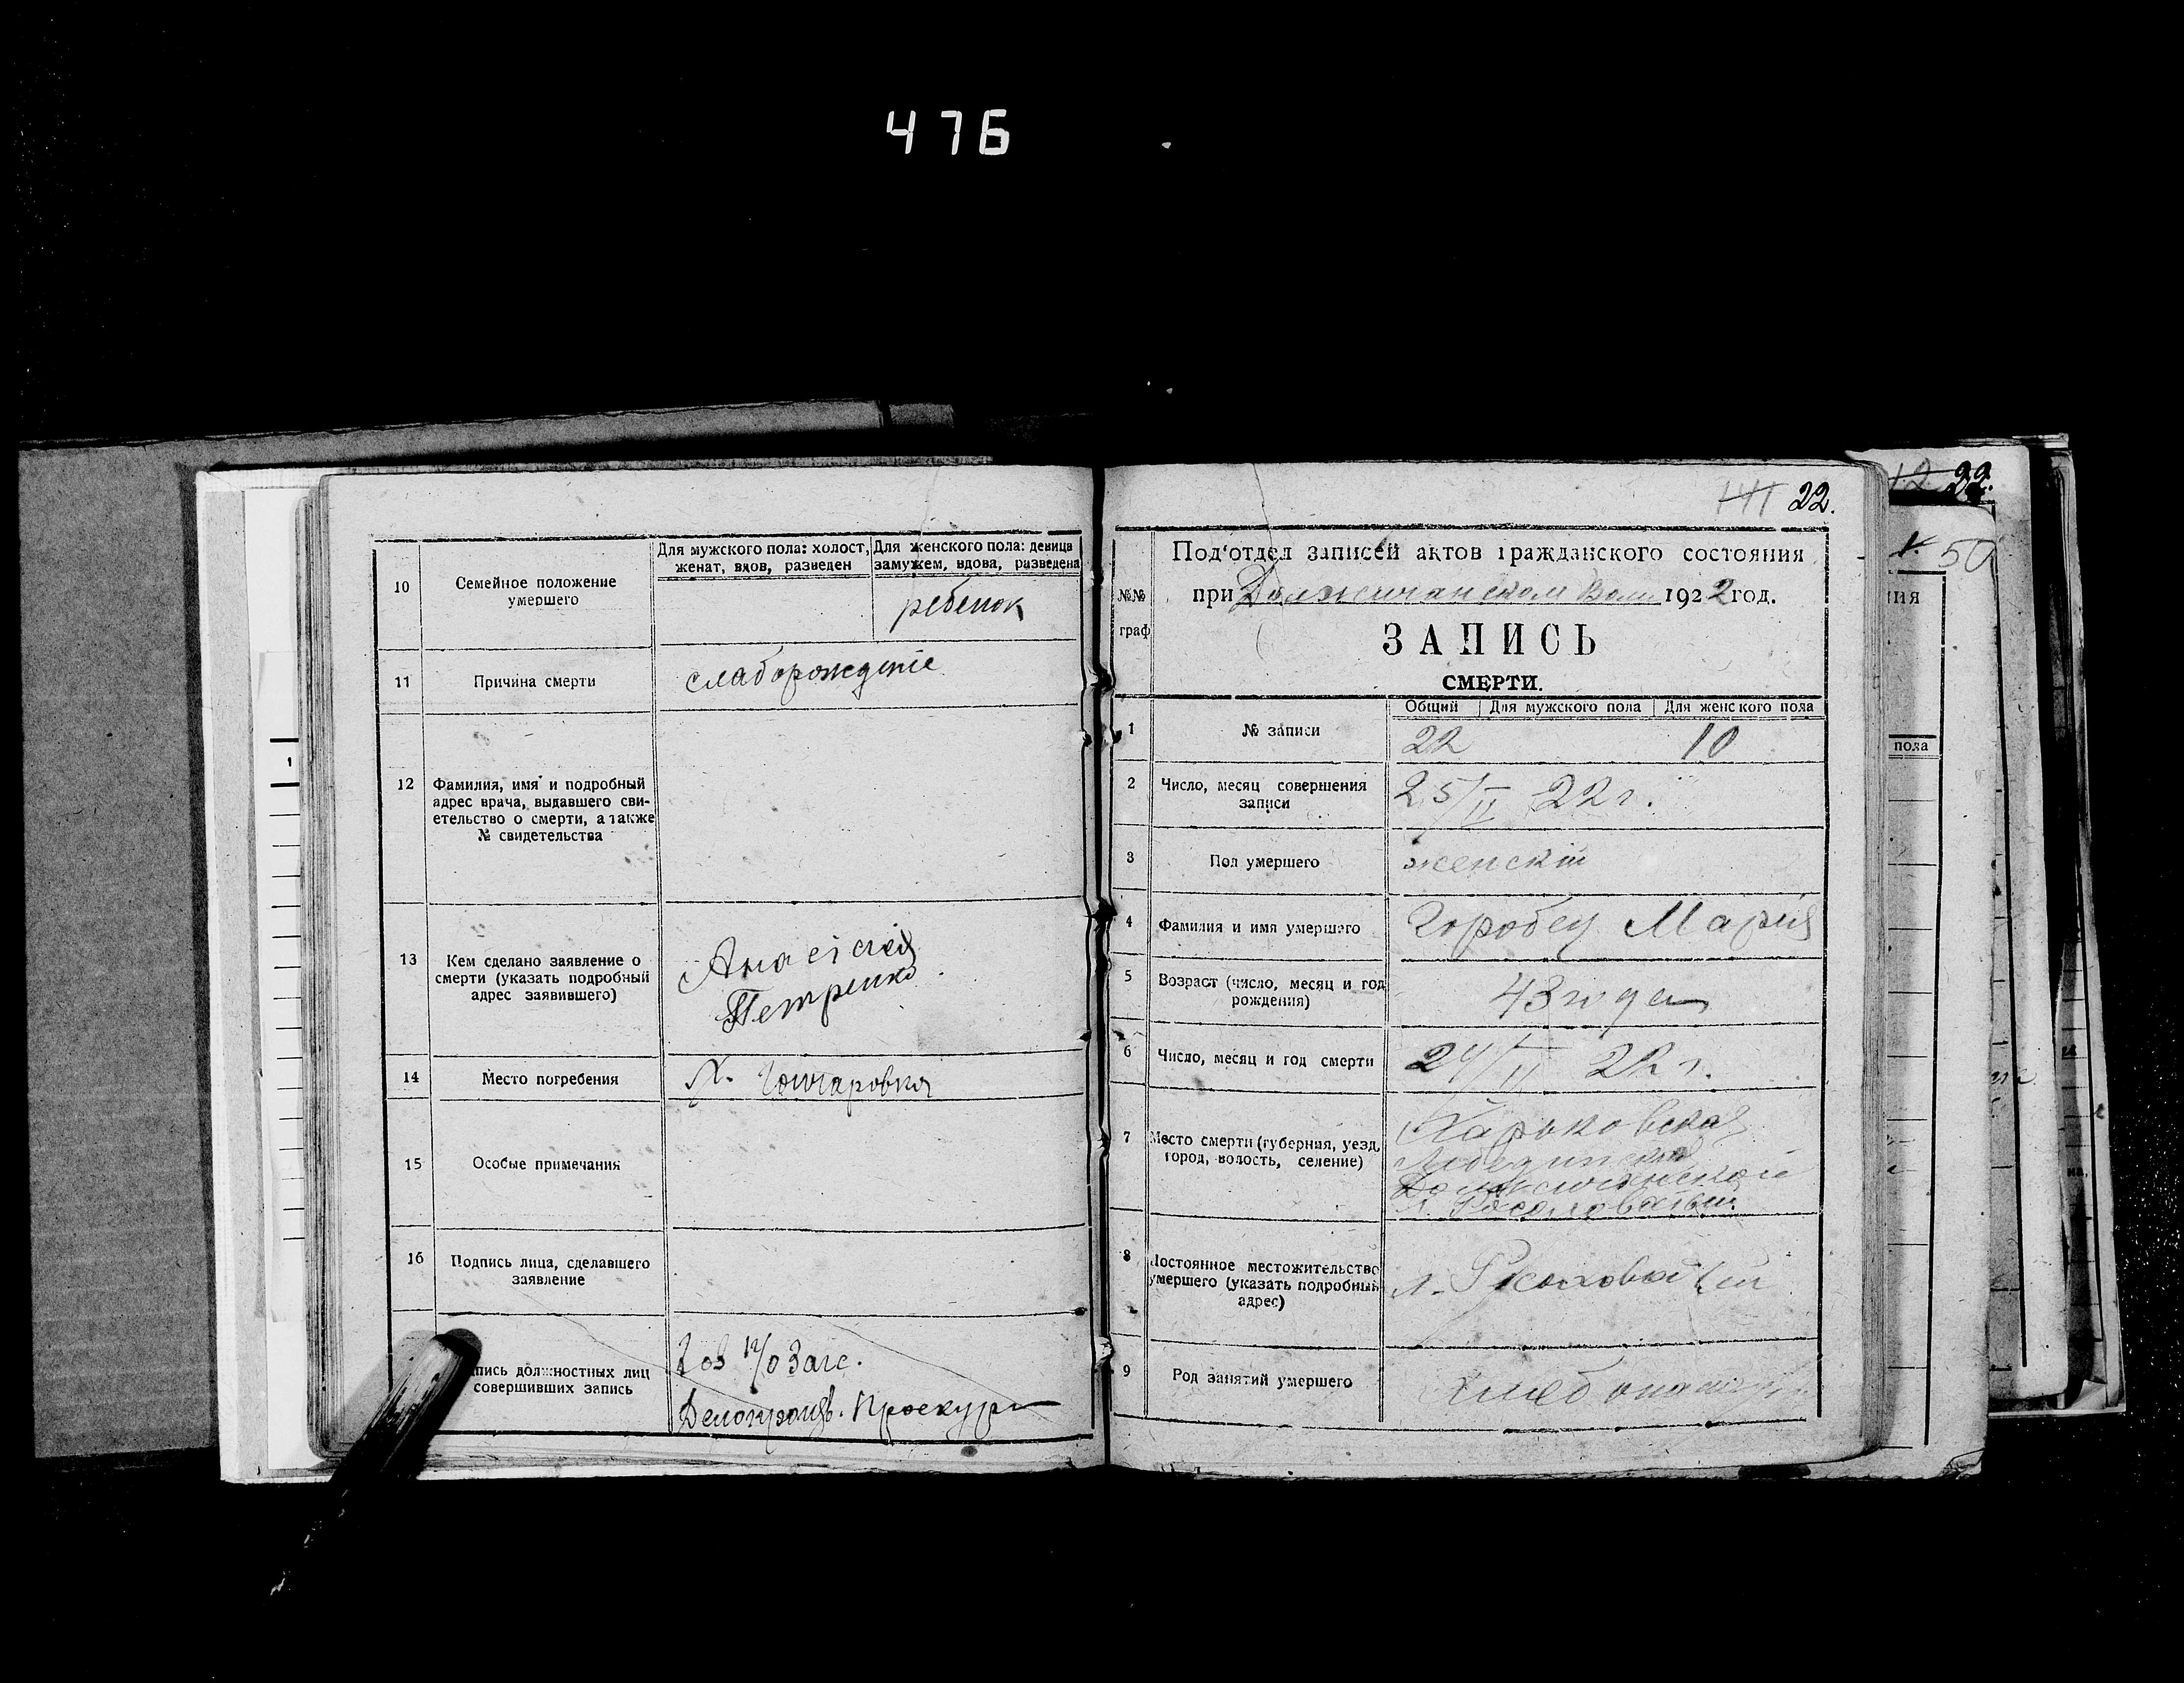 476
10
Семейное положение
умершего
Для мужского пола: холост,
женат, вдов, разведен
Для женского пола: девица
замужем, вдова, разведена
ребенок
11
Причина смерти
слаборождение
12
Фамилия, имя и подробный
адрес врача, выдавшего сви-
етельство о смерти, а также
№ свидетельства
13
Кем сделано заявление о
смерти (указать подробный
адрес заявившего)
Анастасия
Петренко
14
Место погребения
х. Гончаровка
15
Особые примечания
16
Подпись лица, сделавшего
заявление
пись должностных лиц
совершивших запись
Зав п/о Загс.
Делопроизв. Проскур
141 22.
№№
граф
Под'отдел записей актов гражданского состояния
при Должичанском Вол 1922 год.
ЗАПИСЬ
СМЕРТИ.
1
№ записи
Общий
Для мужского пола
Для женского пола
22
10
2
Число, месяц совершения
записи
25/II 22 г.
3
Пол умершего
женскій
4
Фамилия и имя умершего
Горобец Мария
5
Возраст (число, месяц и год
рождения)
43 года
6
Число, месяц и год смерти
24/II 22 г.
7
Место смерти (губерния, уезд,
город, волость, селение)
Харьковская
Лебединский
Должичанской
8
Постоянное местожительство
умершего (указать подробный
адрес)
9
Род занятий умершего
хлебопашец
12 22.
1. 50
ния
пола